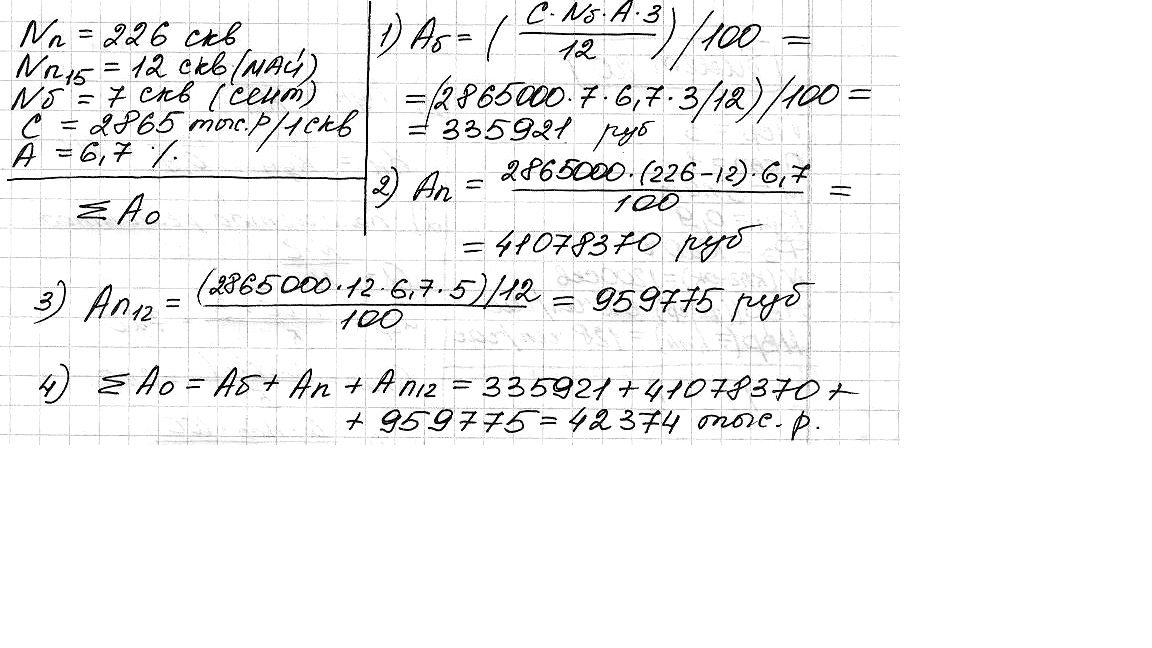 Nп = 226 скв
Nп15 = 12 скв (май)
Nб = 7 скв (сент)
C = 2865 тыс.р/1скв
A = 6,7 %.
Σ Aо
1) Aб = ( C·Nб·A·3 / 12 ) /100 =
= (2865000·7·6,7·3/12) /100 =
= 335921 руб
2) Aп = 2865000·(226-12)·6,7 / 100 =
= 41078370 руб
3) Aп12 = (2865000·12·6,7·5)/12 / 100 = 959775 руб
4) Σ Aо = Aб + Aп + Aп12 = 335921 + 41078370 +
+ 959775 = 42374 тыс. р.